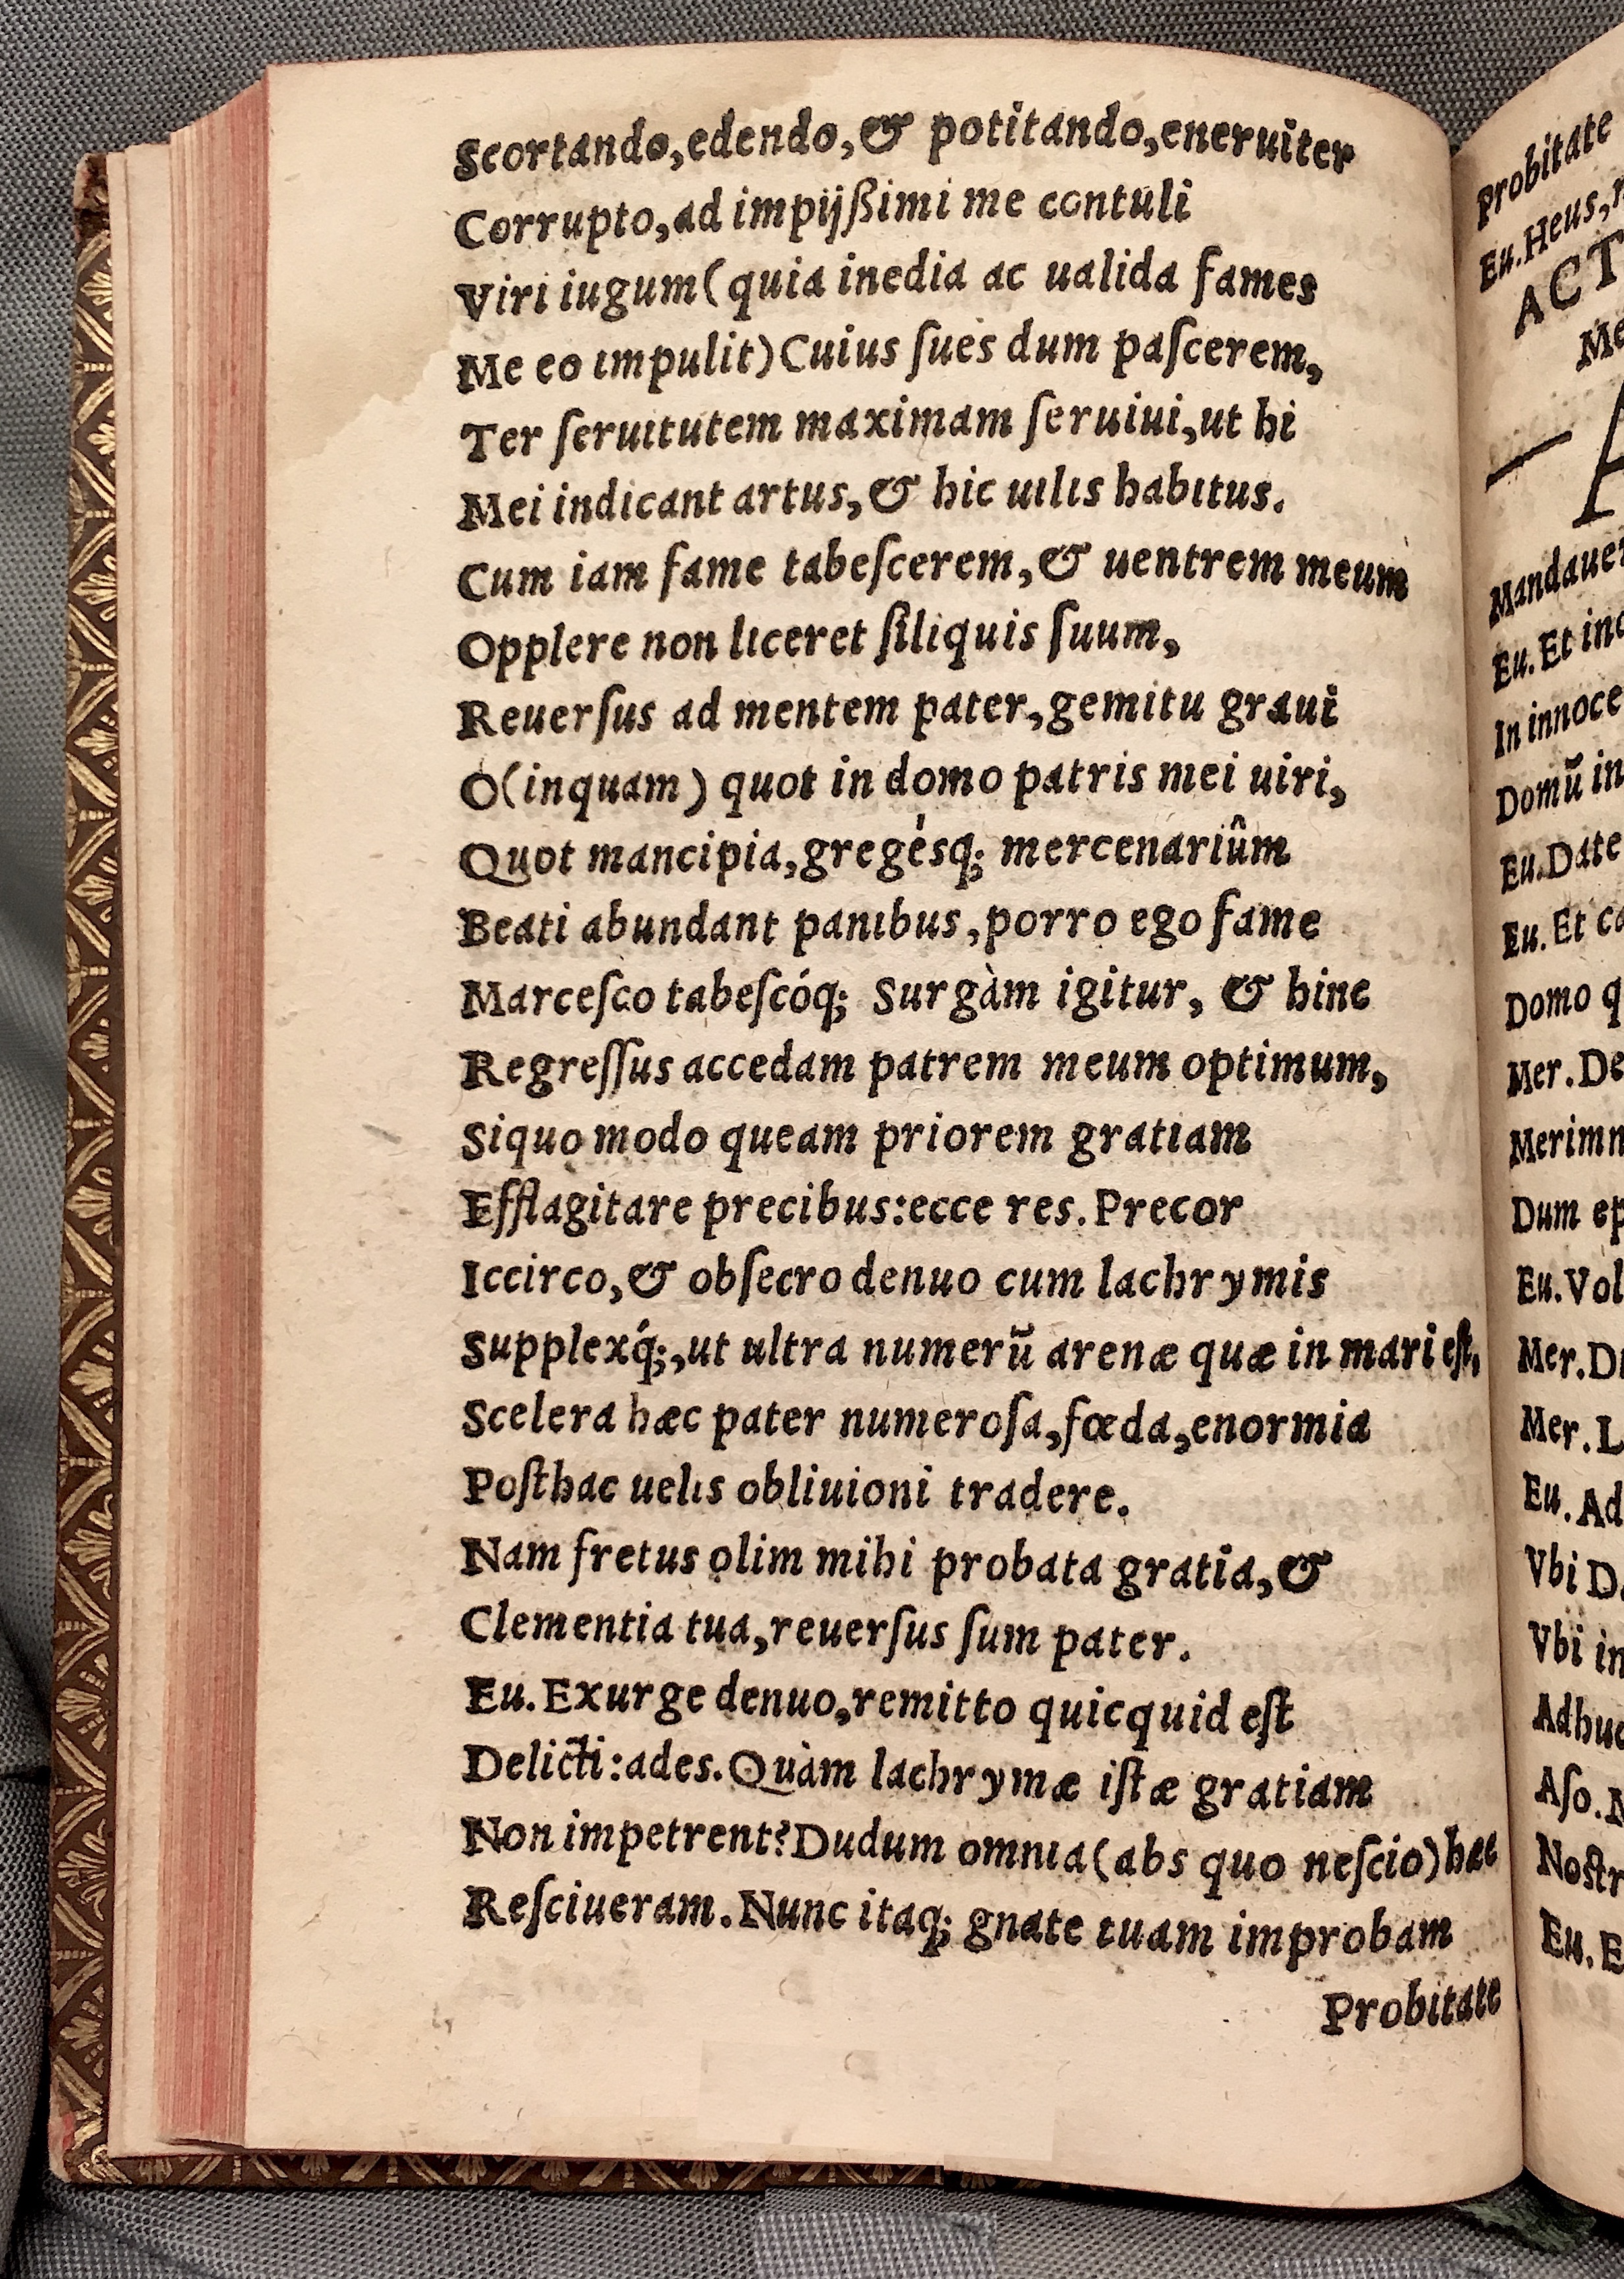 Scortando,edendo,& potitando,eneruiter
Corrupto,ad impijßimi me contuli
Viri iugum( quia inedia ac ualida fames
Me eo impulit) Cuius ſues dum paſcerem,
Ter ſeruitutem maximam ſeruiui,ut hi
Mei indicant artus,& hic uilis habitus.
Cum iam fame tabeſcerem,& uentrem meum
Opplere non liceret ſiliquis ſuum,
Reuerſus ad mentem pater,gemitu graui
O(inquam) quot in domo patris mei uiri,
Quot mancipia,gregésq; mercenariûm
Beati abundant panibus,porro ego fame
Marceſco tabeſcóq; Surgàm igitur, & hinc
Regreſſus accedam patrem meum optimum,
Siquo modo queam priorem gratiam
Efflagitare precibus:ecce res. Precor
Iccirco,& obſecro denuo cum lachrymis
Supplexq́;,ut ultra numerũ arenæ quæ in mari eſt,
Scelera hæc pater numeroſa,fœda,enormia
Poſthac uelis obliuioni tradere.
Nam fretus olim mihi probata gratia,&
Clementia tua,reuerſus ſum pater.
Eu. Exurge denuo,remitto quicquid eſt
Delicti:ades. Quàm lachrymæ iſtæ gratiam
Non impetrent? Dudum omnia(abs quo neſcio)hæc
Reſciueram. Nunc itaq; gnate tuam improbam
Probitate
Probitate
Eu. Heus,
ACT
Me
Eu. Et
In
Domũ in
Eu. Date
Eu. Et
Domo
Mer. De
Dum
Eu.
Mer.
Mer.
Eu. Ad
Vbi
Vbi
Aſo.
Eu.